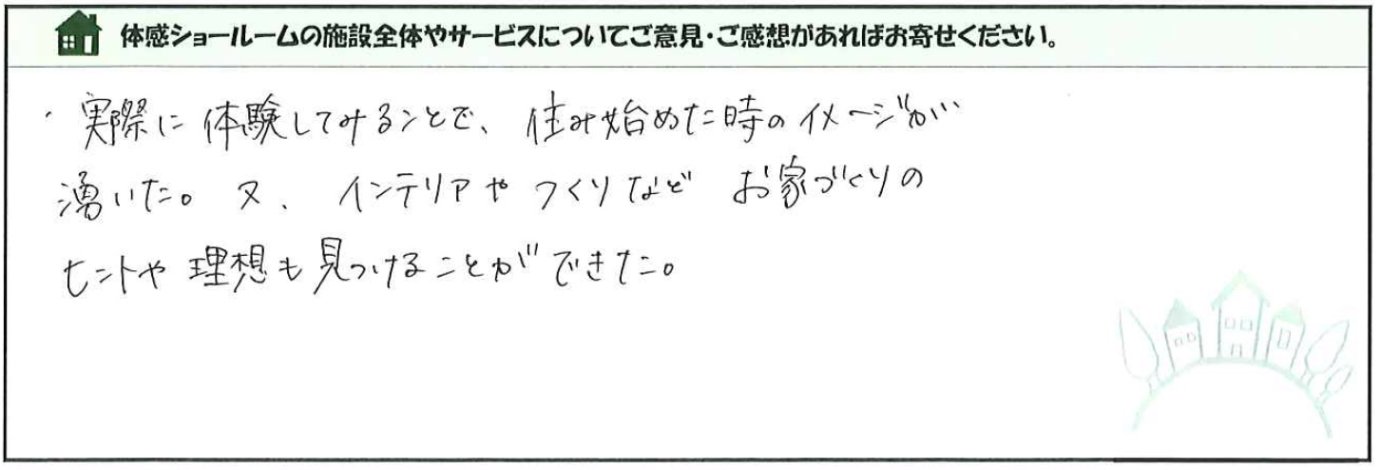 体感ショールームの施設全体やサービスについてご意見・ご感想があればお寄せください。
・実際に体験してみることで、住み始めた時のイメージが
湧いた。又、インテリアやつくりなど お家づくりの
ヒントや理想も見つけることができた。